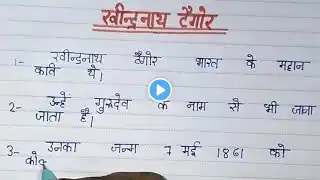 रवीन्द्रनाथ टैगोर
1- रवीन्द्रनाथ टैगोर भारत के महान
कवि थे।
2- उन्हें गुरुदेव के नाम से भी जाना
जाता है।
3- उनका जन्म 7 मई 1861 को
को